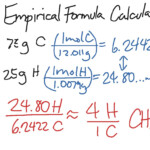 Empirical Formula Calcula
75g C (1molC / 12.011g) = 6.2442
25g H (1molH / 1.0079g) = 24.80...
24.80H / 6.2422 C ≈ 4 H / 1 C CH